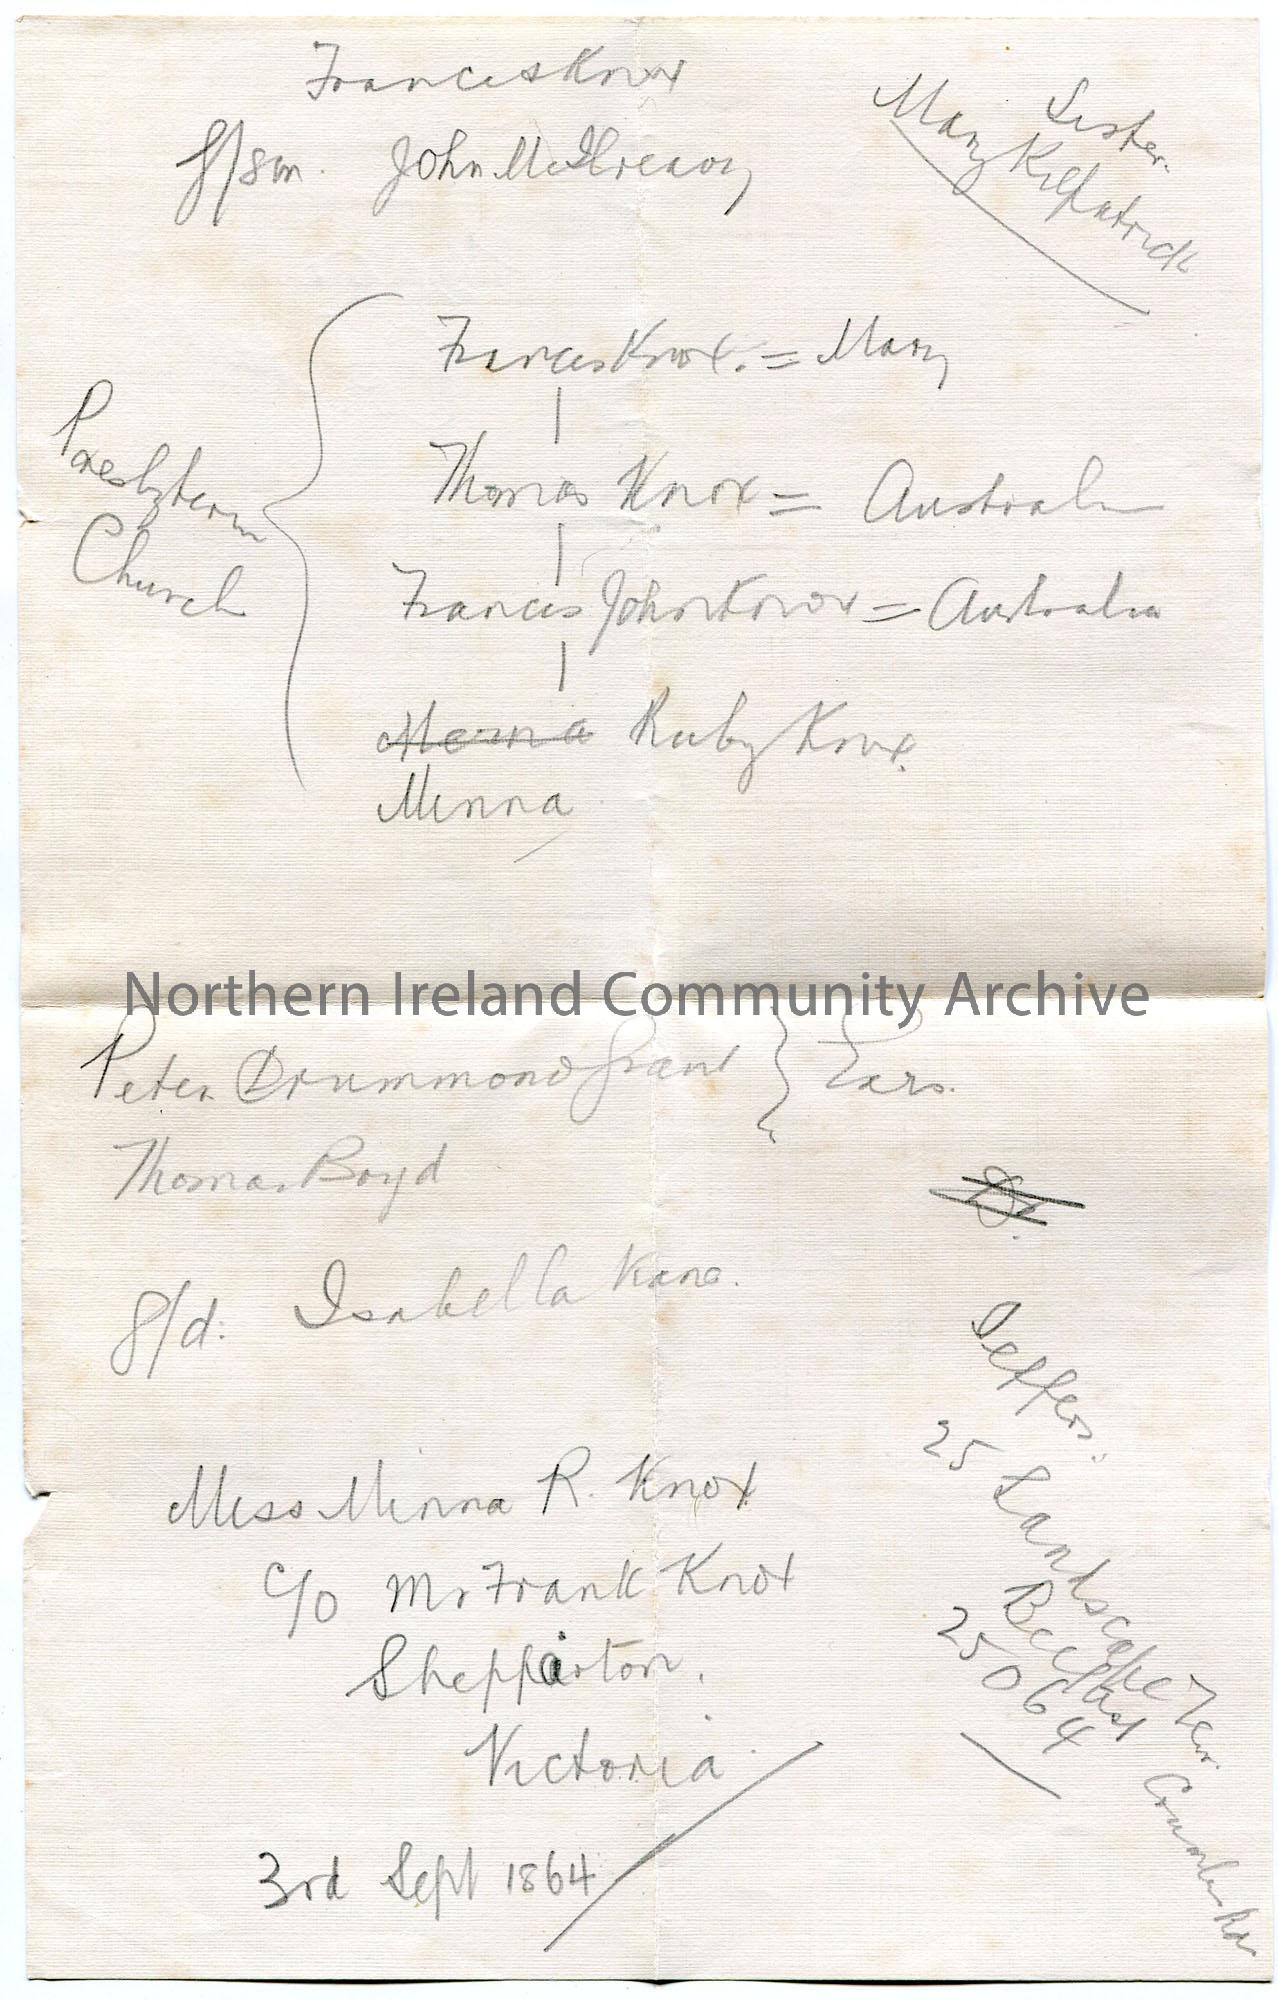 Francis Knox
g/son. John McIlreavy
Sister.
Mary Kilpatrick
Francis Knox. = Mary
Thomas Knox = Australia
Francis John Knox = Australia
Presbyterian
Church
Menna Ruby Knox.
Minna
Northern Ireland Community Archive
Peter Drummond Grant } Exrs.
Thomas Boyd
g/d: Isabella Kane.
Jeffers.
25 Landscape Ter. Crumlin Rd
Belfast
25064
Miss Minna R. Knox
c/o Mr Frank Knox
Shepparton.
Victoria.
3rd Sept 1864